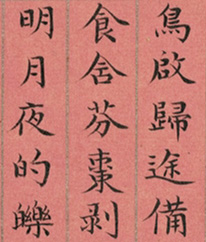 鳥啟歸途備
食舍芬棗剥
明月夜的皪